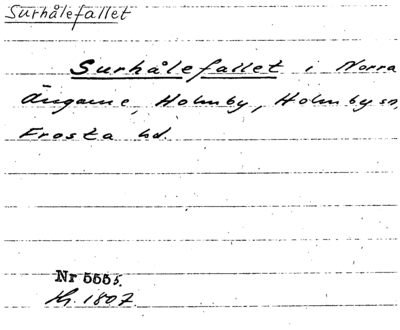 Surhålefallet
Surhålefallet i Norra
Ängarne, Holmby, Holmby sn,
Frosta hd.
Nr 5555.
Kr. 1807.